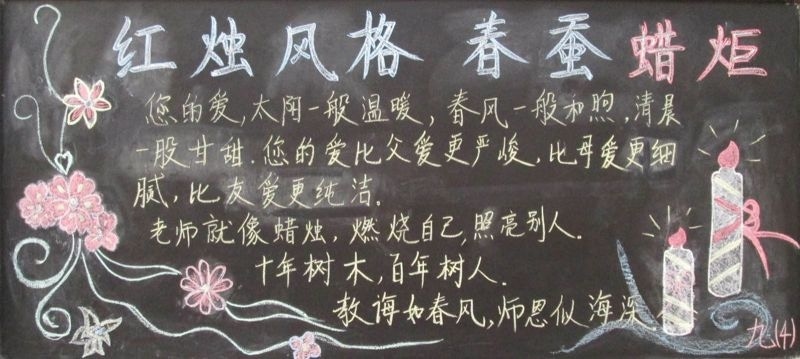 红烛风格 春蚕蜡炬
您的爱,太阳一般温暖,春风一般和煦,清晨
一般甘甜.您的爱比父爱更严峻,比母爱更细
腻,比友爱更纯洁.
老师就像蜡烛,燃烧自己,照亮别人.
十年树木,百年树人.
教诲如春风,师恩似海深
九(4)